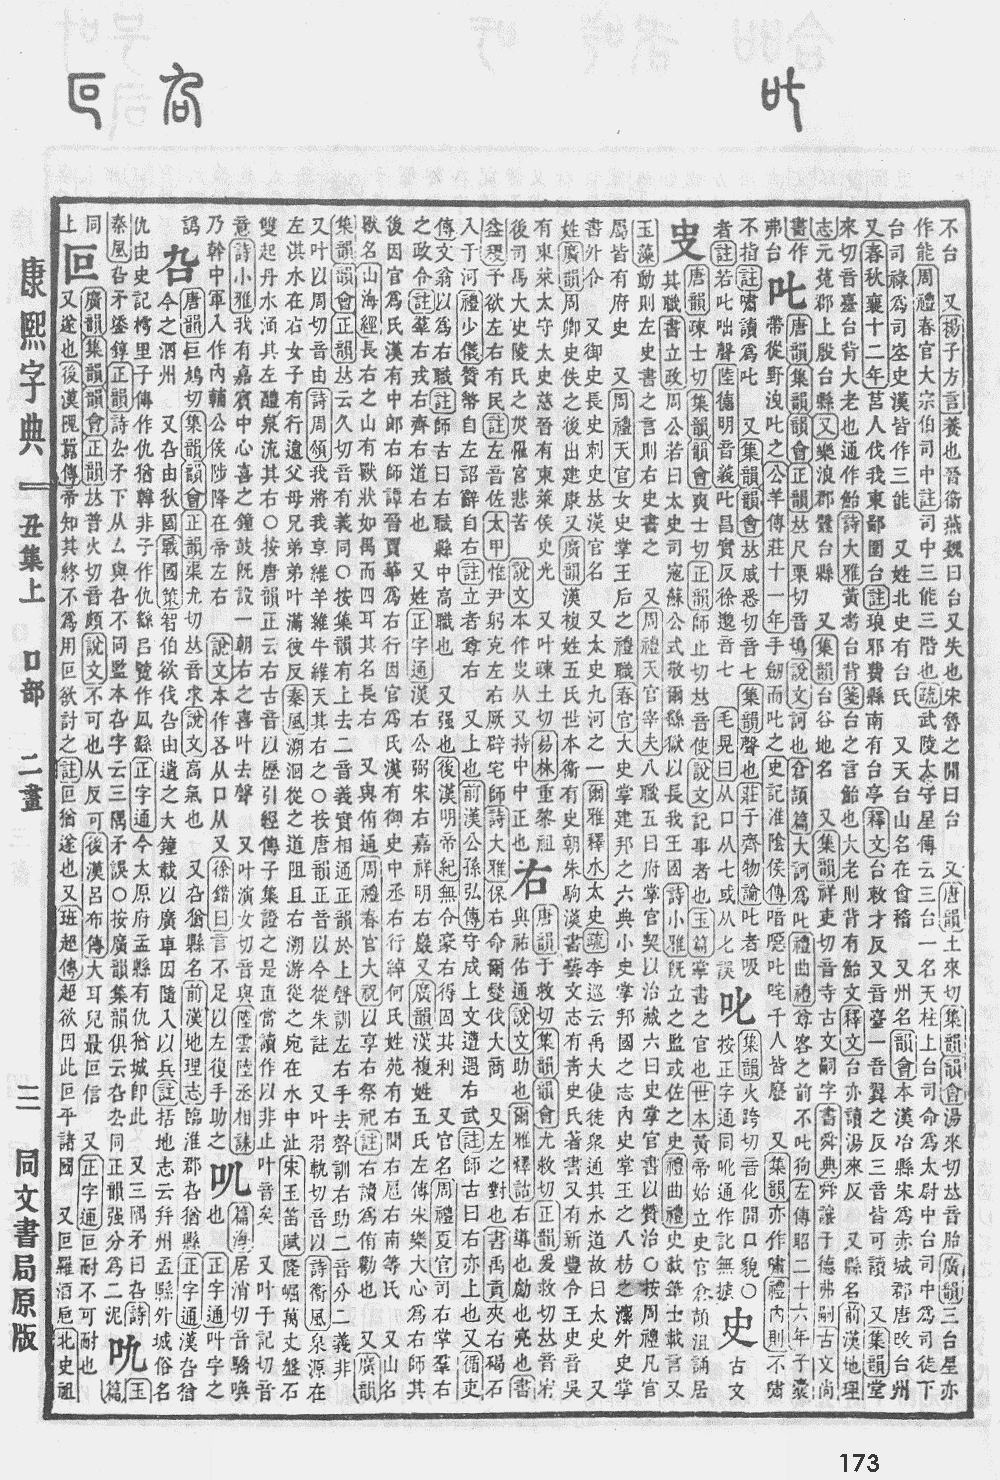 康熙字典　丑集上　口部　二畫　三　同文書局原版
不台　又揚子方言養也晉衞燕魏曰台又失也宋魯之閒曰台　又唐韻土來切集韻韻會湯來切𠀤音胎廣韻三台星亦
作能周禮春官大宗伯司中註司中三能三階也疏武陵太守星傳云三台一名天柱上台司命爲太尉中台司中爲司徒下
台司祿爲司空史漢皆作三能　又姓北史有台氏　又天台山名在會稽　又州名韻會本漢冶縣宋爲赤城郡唐改台州
又春秋襄十二年莒人伐我東鄙圍台註琅邪費縣南有台亭釋文台敕才反又音臺一音翼之反三音皆可讀　又集韻堂
來切音臺台背大老也通作鮐詩大雅黃耇台背箋台之言鮐也大老則背有鮐文釋文台亦讀湯來反　又縣名前漢地理
志元菟郡上殷台縣又樂浪郡蠶台縣　又集韻台谷地名　又集韻祥吏切音寺古文嗣字書舜典舜讓于德弗嗣古文尚
書作
弗台
叱
唐韻集韻韻會正韻𠀤尺栗切音䲸說文訶也倉頡篇大訶爲叱禮曲禮尊客之前不叱狗左傳昭二十六年子囊
帶從野洩叱之公羊傳莊十一年手劒而叱之史記淮陰侯傳喑噁叱咤千人皆廢　又集韻亦作嘯禮內則不嘯
不指註嘯讀爲叱　又集韻韻會𠀤戚悉切音七集韻聲也莊子齊物論叱者吸
者註若叱咄聲陸德明音義叱昌實反徐邀音七　毛晃曰从口从七或从𠤎誤
𠮟
集韻火跨切音化開口貌○
按正字通同吪通作訛無據
史
古文
㕜
唐韻疎士切集韻韻會爽士切正韻師止切𠀤音使說文記事者也玉篇掌書之官也世本黃帝始立史官倉頡沮誦居
其職書立政周公若曰太史司寇蘇公式敬爾繇獄以長我王國詩小雅旣立之監或佐之史禮曲禮史載筆士載言又
玉藻動則左史書之言則右史書之　又周禮天官宰夫八職五曰府掌官契以治藏六曰史掌官書以贊治○按周禮凡官
屬皆有府史　又周禮天官女史掌王后之禮職春官大史掌建邦之六典小史掌邦國之志內史掌王之八枋之灋外史掌
書外令　又御史長史刺史𠀤漢官名　又太史九河之一爾雅釋水太史疏李巡云禹大使徒衆通其水道故曰太史　又
姓廣韻周卿史佚之後出建康又廣韻漢複姓五氏世本衞有史朝朱駒漢書藝文志有靑史氏著書又有新豐令王史音吳
有東萊太守太史慈晉有東萊侯史光　又叶疎土切易林重黎祖
後司馬太史陵氏之災雁宮悲苦　說文本作㕜从又持中中正也
右
唐韻于救切集韻韻會尤救切正韻爰救切𠀤音宥
與祐佑通說文助也爾雅釋詁右導也勴也亮也書
益稷予欲左右有民註左音佐太甲惟尹躬克左右厥辟宅師詩大雅保右命爾燮伐大商　又左之對也書禹貢夾右碣石
入于河禮少儀贊幣自左詔辭自右註立者尊右　又上也前漢公孫弘傳守成上文遭遇右武註師古曰右亦上也又循吏
傳文翁以爲右職註師古曰右職縣中高職也　又强也後漢明帝紀無令豪右得固其利　又官名周禮夏官司右掌羣右
之政令註羣右戎右齊右道右也　又姓正字通漢右公弼宋右嘉祥明右巖又廣韻漢複姓五氏左傳宋樂大心爲右師其
後因官爲氏漢有中郞右師譚晉賈華爲右行因官爲氏漢有御史中丞右行綽何氏姓苑有右閭右扈右南等氏　又山名
獸名山海經長右之山有獸狀如禺而四耳其名長右　又與侑通周禮春官大祝以享右祭祀註右讀爲侑勸也　又廣韻
集韻韻會正韻𠀤云久切音有義同○按集韻有上去二音義實相通正韻於上聲訓左右手去聲訓右助二音分二義非
又叶以周切音由詩周頌我將我享維羊維牛維天其右之○按唐韻正音以今從朱註　又叶羽軌切音以詩衞風泉源在
左淇水在右女子有行遠父母兄弟弟叶滿彼反秦風溯洄從之道阻且右溯游從之宛在水中沚宋玉笛賦隆崛萬丈盤石
雙起丹水涌其左醴泉流其右○按唐韻正云右古音以歷引經傳子集證之是直當讀作以非止叶音矣　又叶于記切音
意詩小雅我有嘉賓中心喜之鐘鼓旣設一朝右之喜叶去聲　又叶演女切音與陸雲陸丞相誄
乃幹中軍入作內輔公侯陟降在帝左右　說文本作𠮢从口从又徐鍇曰言不足以左復手助之
篇海居消切音驕喚
也　正字通叫字之
譌
叴
唐韻巨鳩切集韻韻會正韻渠尤切𠀤音求說文高氣也　又叴猶縣名前漢地理志臨淮郡叴猶縣正字通漢叴猶
今之泗州　又叴由狄國戰國策智伯欲伐叴由遺之大鐘載以廣車因隨入以兵註括地志云幷州盂縣外城俗名
仇由史記樗里子傳作仇猶韓非子作仇繇呂覽作夙繇正字通今太原府盂縣有仇猶城卽此　又三隅矛曰叴詩
秦風叴矛鋈錞正韻詩厹矛下从厶與叴不同監本叴字云三隅矛誤○按廣韻集韻俱云叴厹同正韻强分爲二泥
玉
篇
同
上
叵
廣韻集韻韻會正韻𠀤普火切音頗說文不可也从反可後漢呂布傳大耳兒最叵信　又正字通叵耐不可耐也
又遂也後漢隗囂傳帝知其終不爲用叵欲計之註叵猶遂也又班超傳超欲因此叵平諸國　又叵羅酒巵北史祖
173